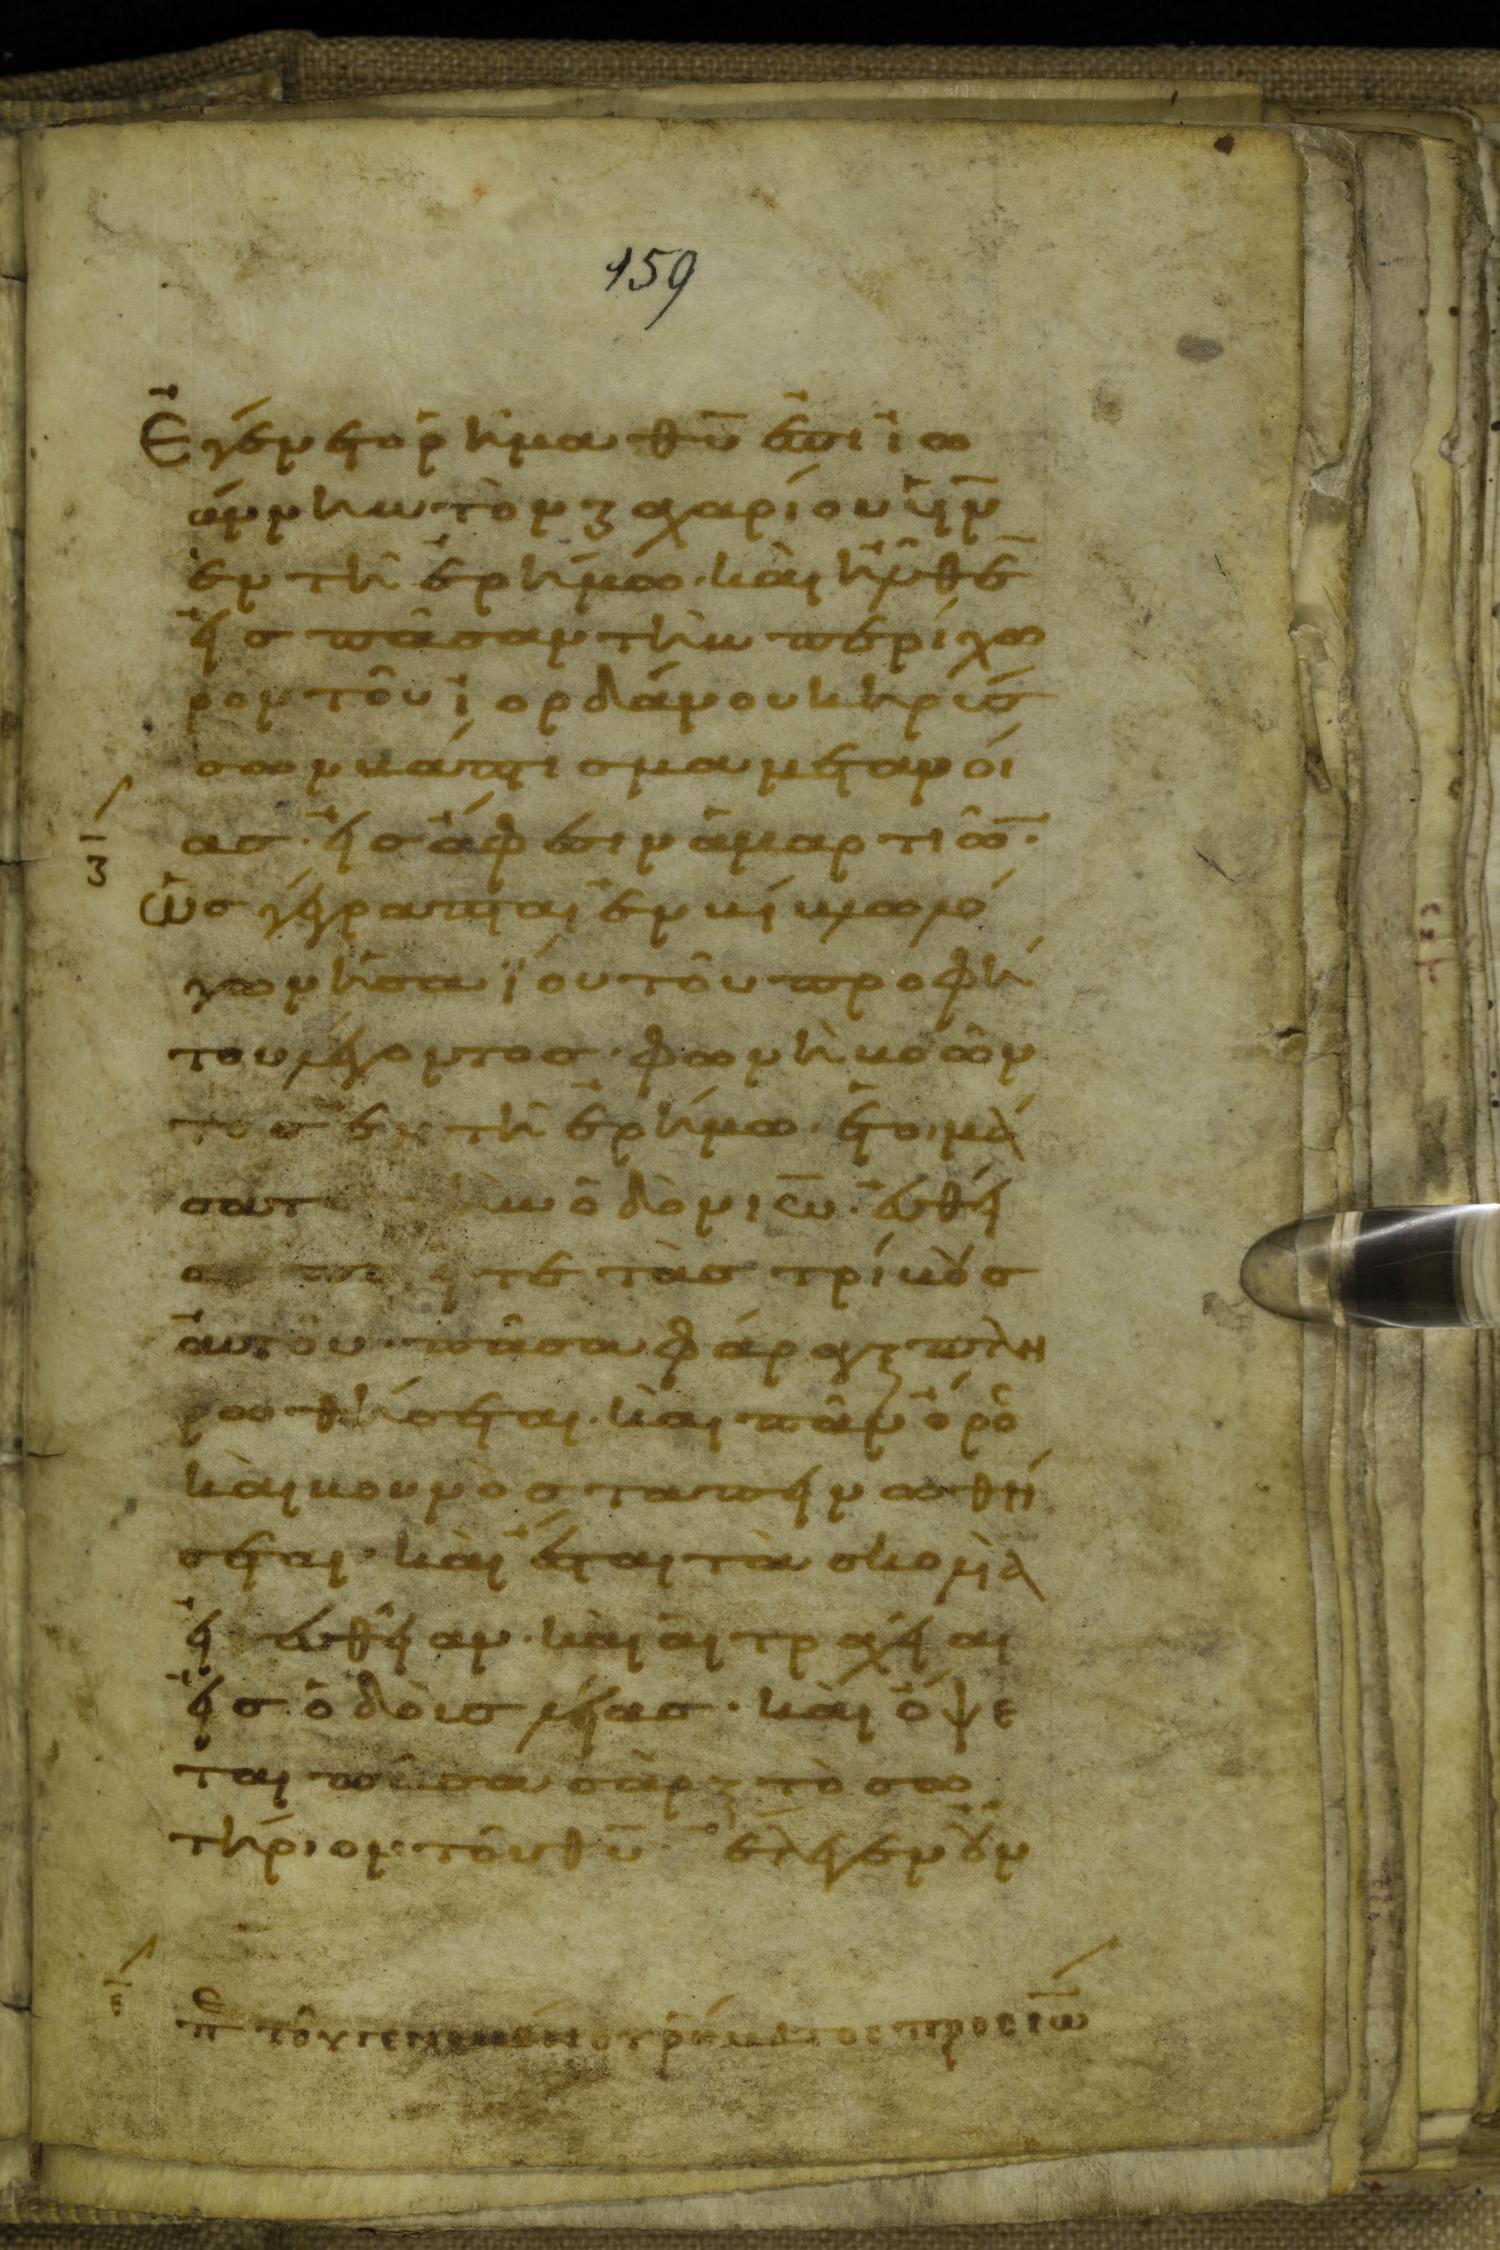 159
Ἐγένετο ῥῆμα θῦ ἐπι ϊω
άννην τὸν ζαχαρίου ϋϊν
ἐν τῆ ἐρήμω· καὶ ἦλθεν
εἰς πᾶσαν τὴν περίχω
ρον τοῦ ϊορδάνου κηρύσ
σων βάπτισμα μετανοί
ας· εἰς ἄφεσιν ἁμαρτιῶν·
ζ
Ὡς γέγραπται ἐν βίβλω λό
γων ἡσαΐου τοῦ προφή
του λέγοντος· φωνὴ βοῶν
τος ἐν τῆ ἐρήμω· ἑτοιμά
σατε τὴν ὁδὸν κῦ· εὐθεί
τε τὰς τρίβους
αὐτοῦ· πᾶσα φάραγξ πλη
ρωθήσεται· καὶ πᾶν ὄρος
καὶ βουνὸς ταπεινωθή
σεται· καὶ ἔσται τὰ σκολιὰ
εἰς εὐθεῖαν· καὶ αἱ τραχεῖαι
εἰς ὁδοὺς λείας· καὶ ὄψε
ται πᾶσα σὰρξ τὸ σω
τήριον τοῦ θῦ· ἔλεγεν οὖν
ε
πε τοῦ γενομένου ῥήματος προς ιω